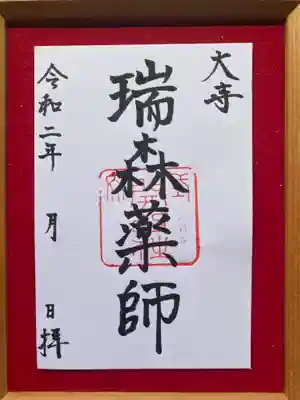 大寺
瑞森薬師
令和二年 月 日 拝